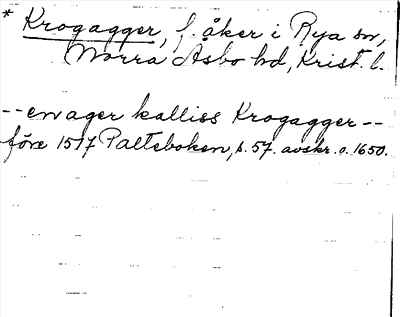 * Krogagger, f. åker i Rya sn,
Norra Åsbo hd, Krist. l.
-- en ager kalliss Krogagger --
före 1517 Palteboken, s. 57. avskr. o. 1650.